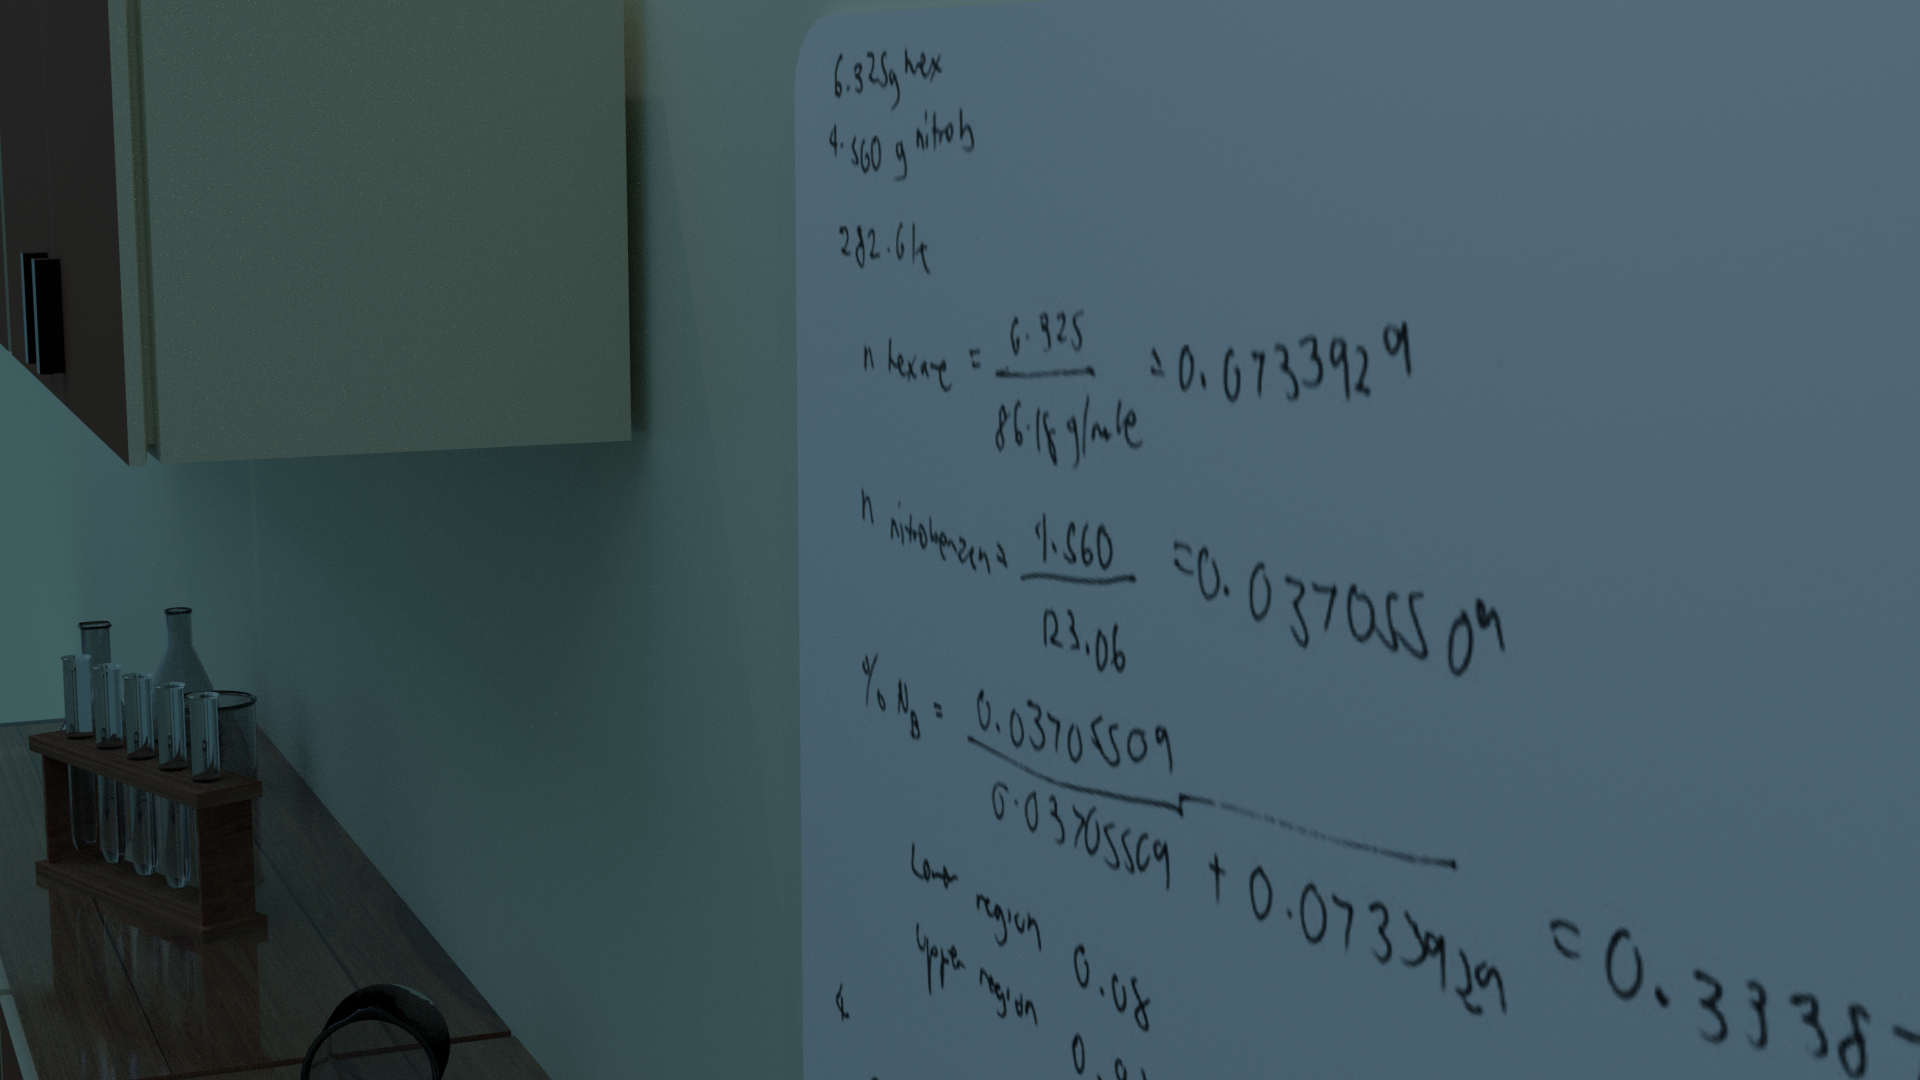 6.325g hex
4.560 g nitrob
282.6 k
n hexane = 6.325 / 86.18 g/mole = 0.0733929
n nitrobenzen = 4.560 / 123.06 = 0.03705509
% NB = 0.03705509 / 0.03705509 + 0.0733929 = 0.3338
Lower region 0.08
Upper region 0.